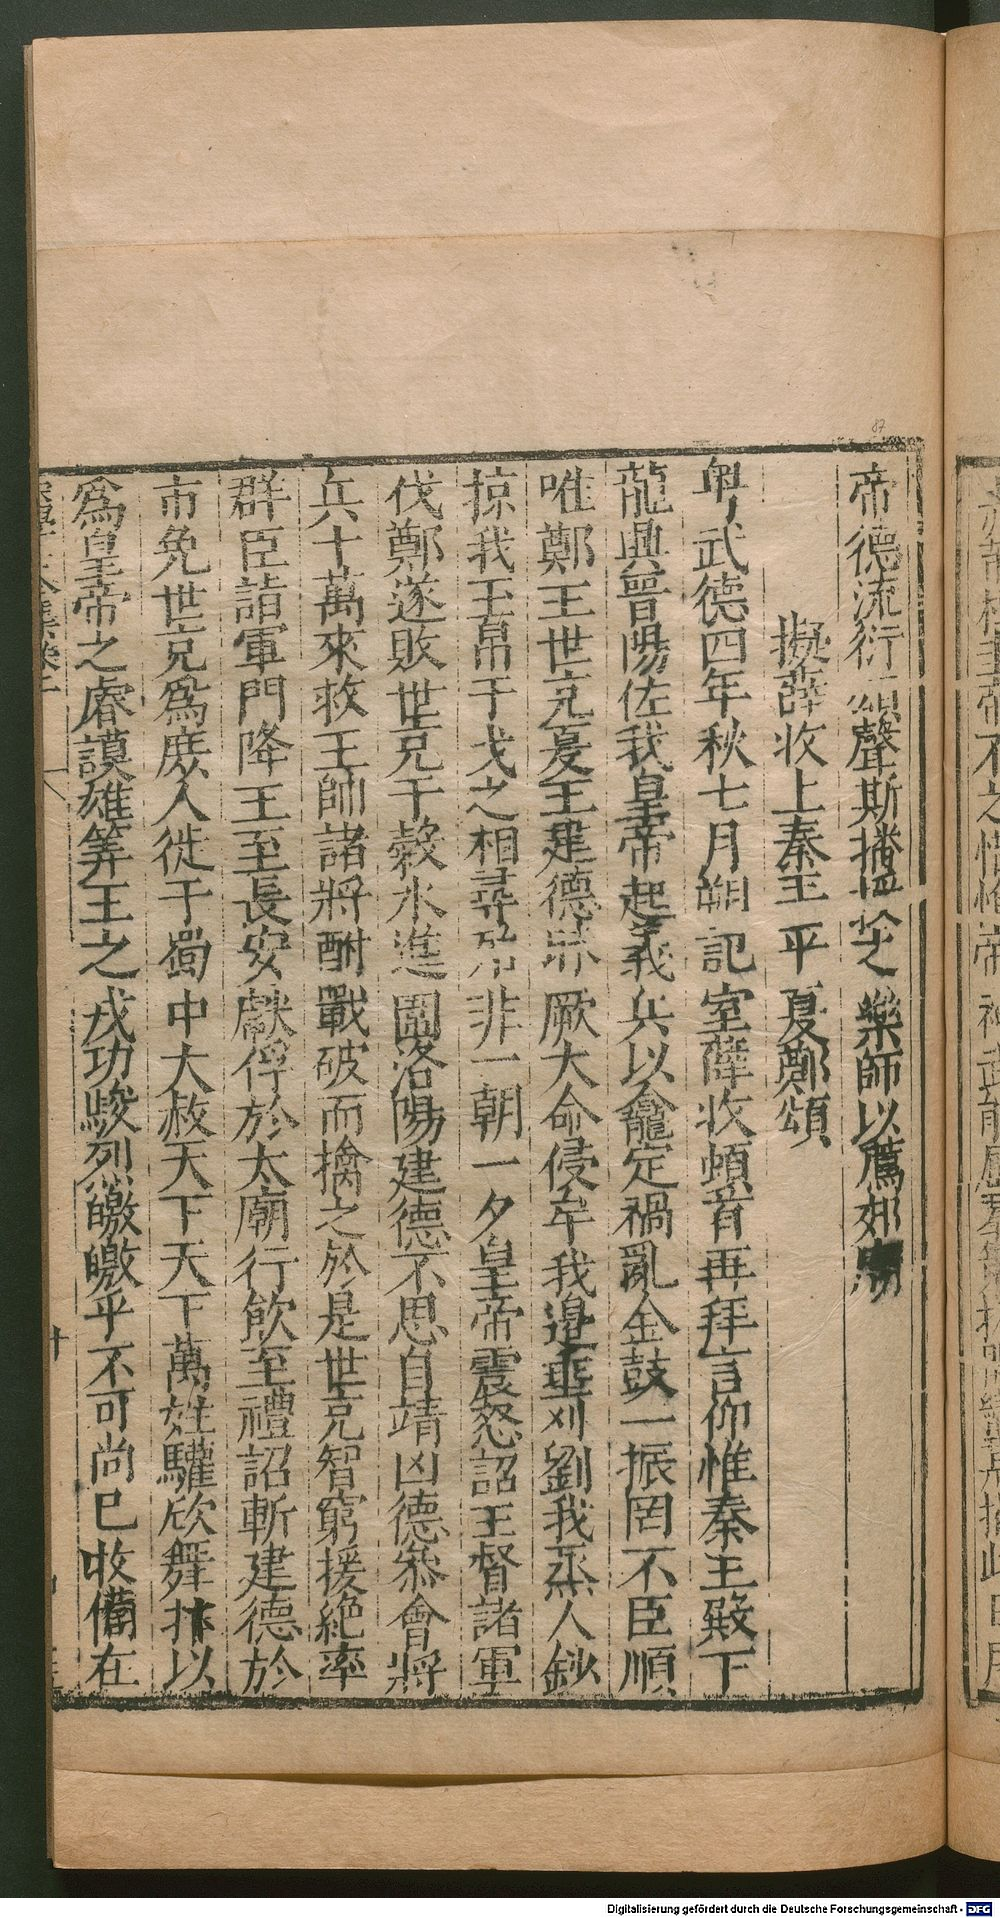 帝德流衍頌聲斯播樂師以薦郊廟
擬薛收上秦王平夏鄭頌
粵武德四年秋七月朔記室薛收頓首再拜言仰惟秦王殿下
龍興晉陽佐我皇帝起義兵以龕定禍亂金鼓一振罔不臣順
唯鄭王世充夏王建德厥大命侵牟我邊埀刈劉我烝人鈔
掠我玉帛干戈之相尋非一朝一夕皇帝震怒詔王督諸軍
伐鄭遂敗世充于穀水進圍洛陽建德不思自靖凶德叅會將
兵十萬來救王帥諸將酣戰破而擒之於是世充智窮援絶率
群臣詣軍門降王至長安獻俘於太廟行飲至禮詔斬建德於
市免世充爲庶人徙于蜀中大赦天下天下萬姓驩欣舞抃以
爲皇帝之睿謨雄筭王之戎功駿烈皦皦乎不可尚已收備在
87
Digitalisierung gefördert durch die Deutsche Forschungsgemeinschaft - DFG